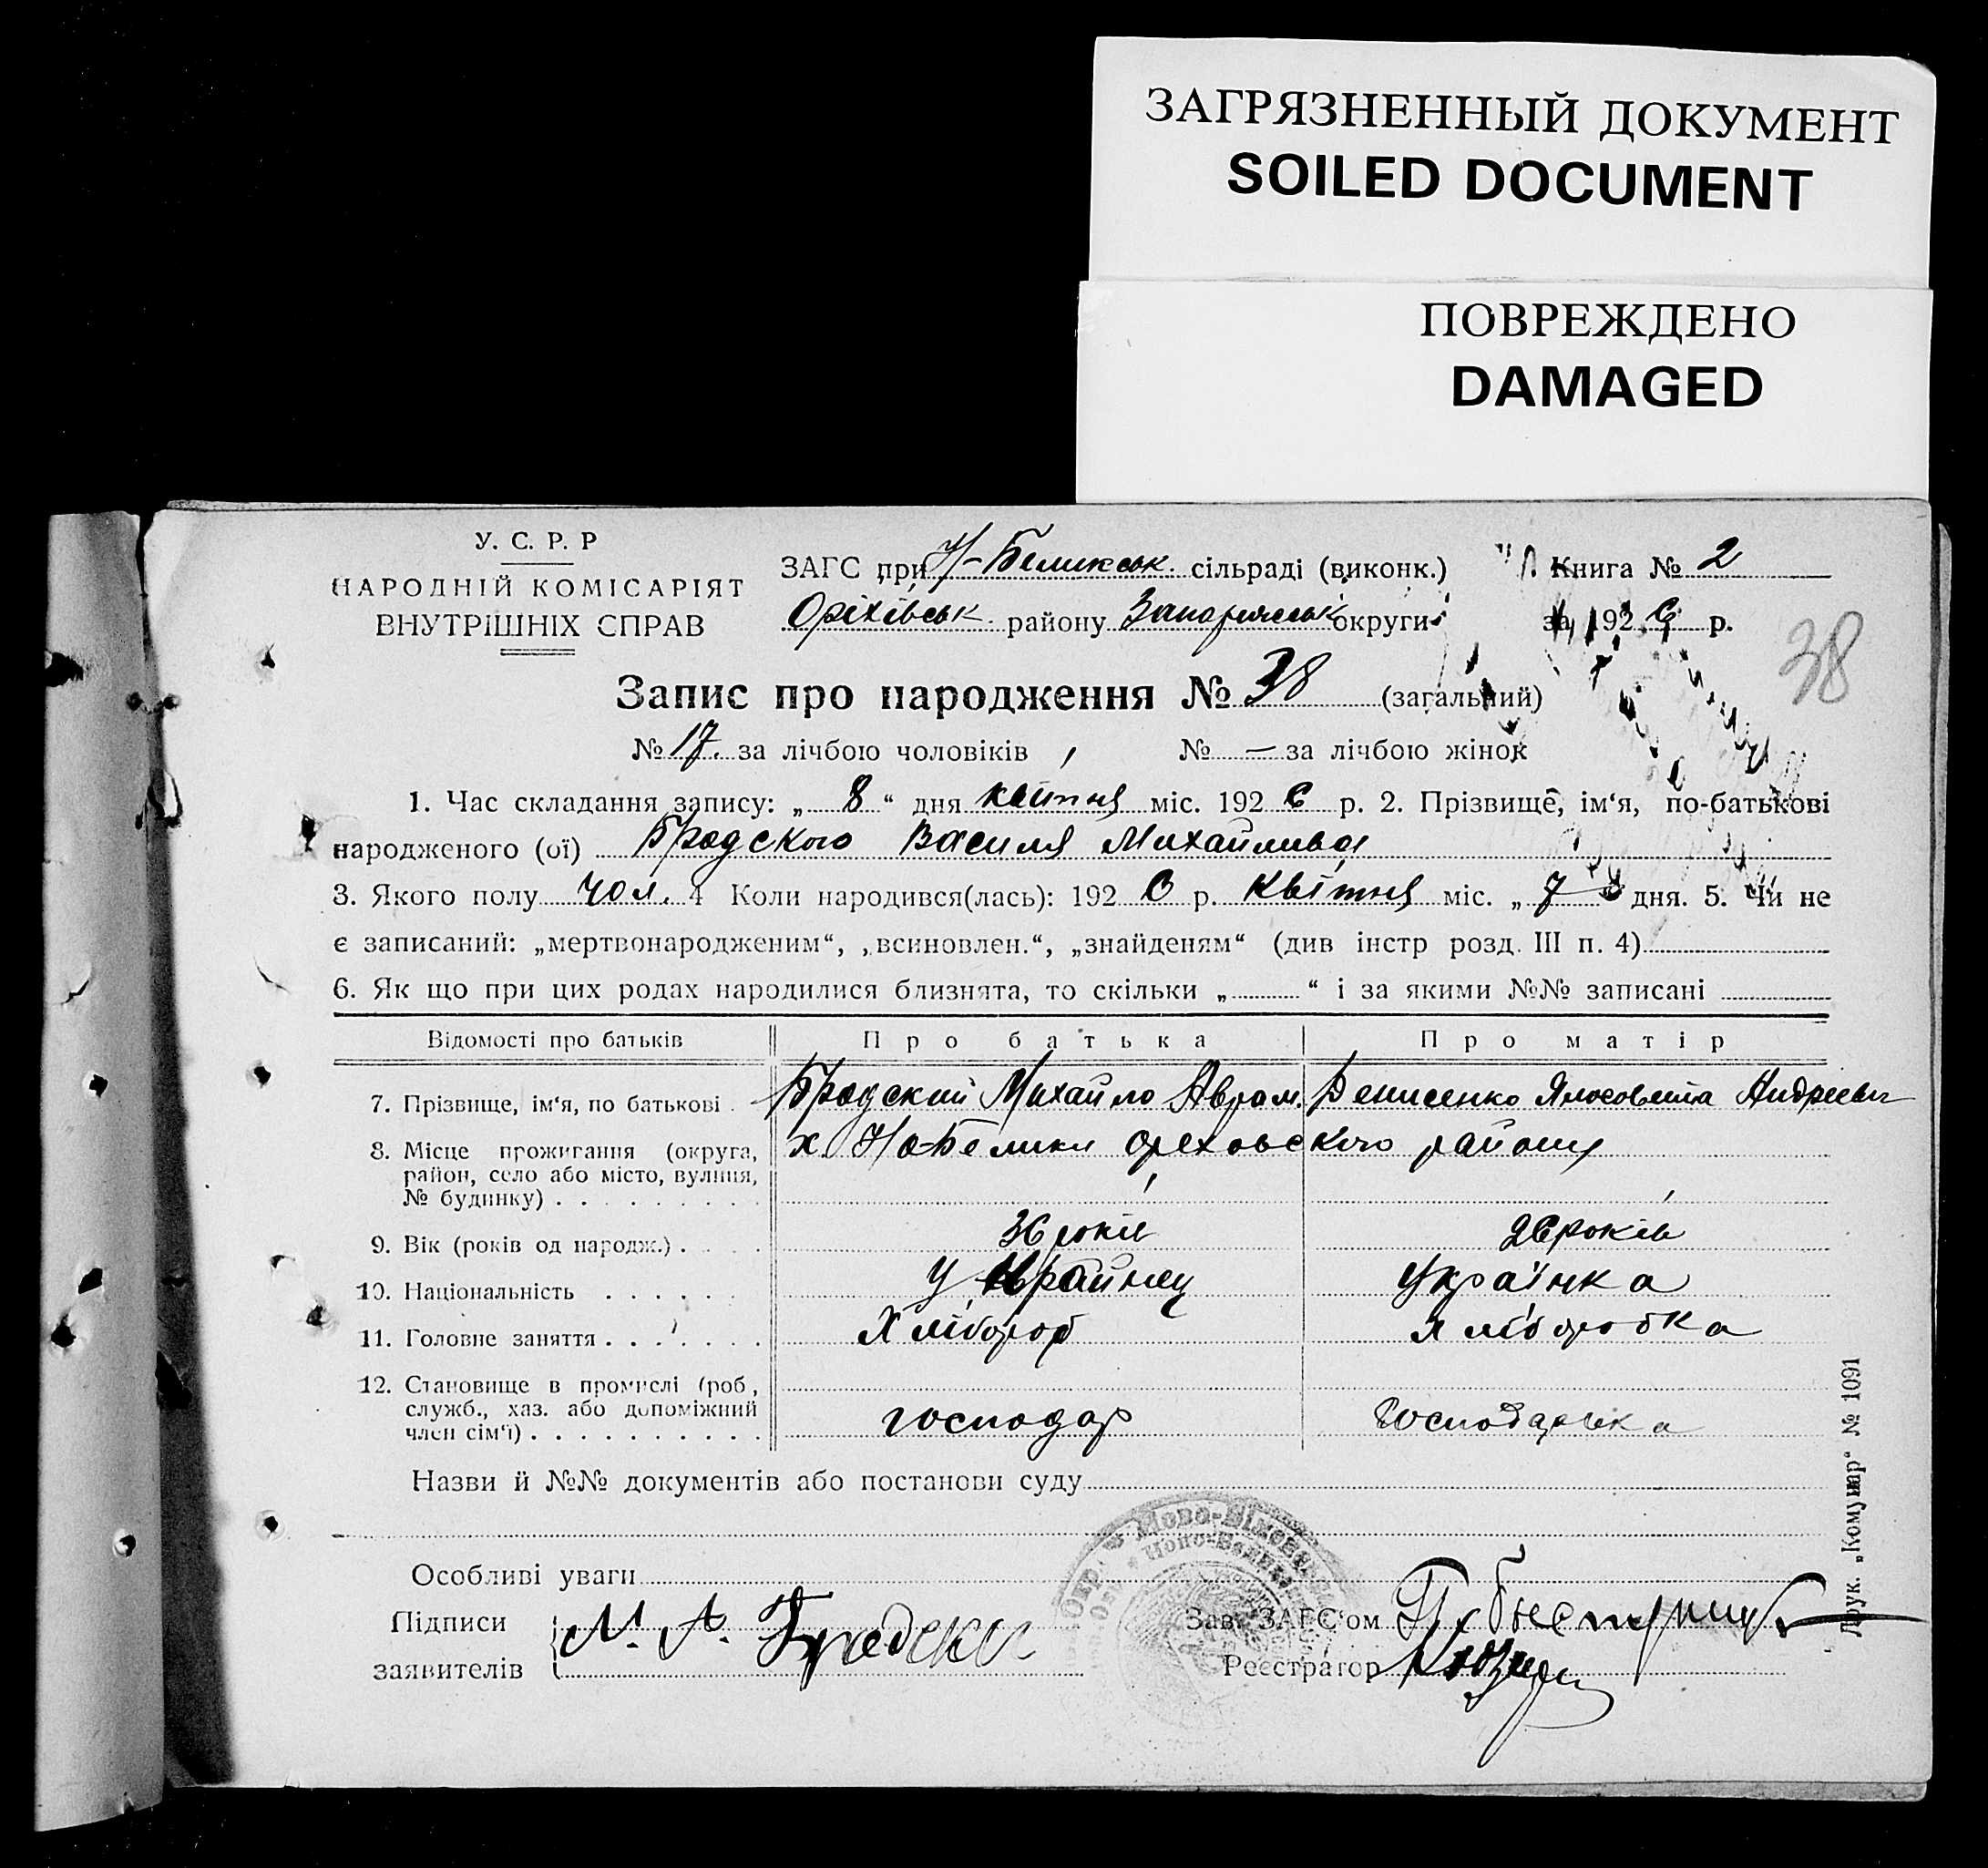 ЗАГРЯЗНЕННЫЙ ДОКУМЕНТ
SOILED DOCUMENT
ПОВРЕЖДЕНО
DAMAGED
У. С. Р. Р
НАРОДНІЙ КОМІСАРІЯТ
ВНУТРІШНІХ СПРАВ
ЗАГС при Н-Беликськ. сільраді (виконк.)
Оріхівськ. району Запоріжськ округи
Книга № 2
за 1926 р.
38
Запис про народження № 38 (загальний)
№ 17. за лічбою чоловіків № — за лічбою жінок
1. Час складання запису: „ 8 “ дня квітня міс. 1926 р. 2. Прізвище, ім‘я, по-батькові
народженого (ої) Бродского Василя Михайлива
3. Якого полу чол. 4 Коли народився(лась): 1926 р. Квітня міс. „ 7 дня. 5. Чи не
є записаний: „мертвонародженим“, „всиновлен.“, „знайденям“ (див інстр розд. III п. 4)
6. Як що при цих родах народилися близнята, то скільки „ “ і за якими №№ записані
Відомості про батьків Про батька Про матір
7. Прізвище, ім‘я, по батькові Бродский Михайло Аврам. Денисенко Андріевн
8. Місце прожигання (округа,
район, село або місто, вулиця,
№ будинку) х. Но-Белики Ореховского району
9. Вік (років од народж.) 36 років 26 років
10. Національність Украйнец Українка
11. Головне заняття Хлібороб Хліборобка
12. Становище в промислі (роб.,
служб., хаз. або допоміжний
член сім‘ї) господар Господарька
Назви й №№ документів або постанови суду
Особливі уваги
Підписи
заявителів М. А. Бродски
Зав. ЗАГС‘ом
Реєстратор
Друк. „Комунар“ № 1091